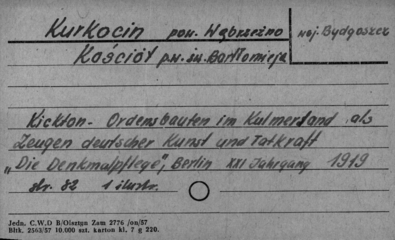 Kurkocin pow. Wąbrzeźno woj. Bydgoszcz
Kościół p.w. św. Bartłomieja
Kickton - Ordensbauten im Kulmerland als
Zeugen deutscher Kunst und Tatkraft
„Die Denkmalpflege", Berlin XXI Jahrgang 1919
str. 82 1 ilustr.
Jedn. C.W.D B/Olsztyn Zam 2776 /on/57
Bltk. 2563/57 10.000 szt. karton kl. 7 g 220.